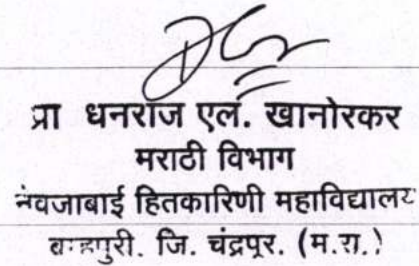 प्रा धनराज एल. खानोरकर
मराठी विभाग
नेवजाबाई हितकारिणी महाविद्यालय
ब्रम्हपुरी. जि. चंद्रपूर. (म.रा.)